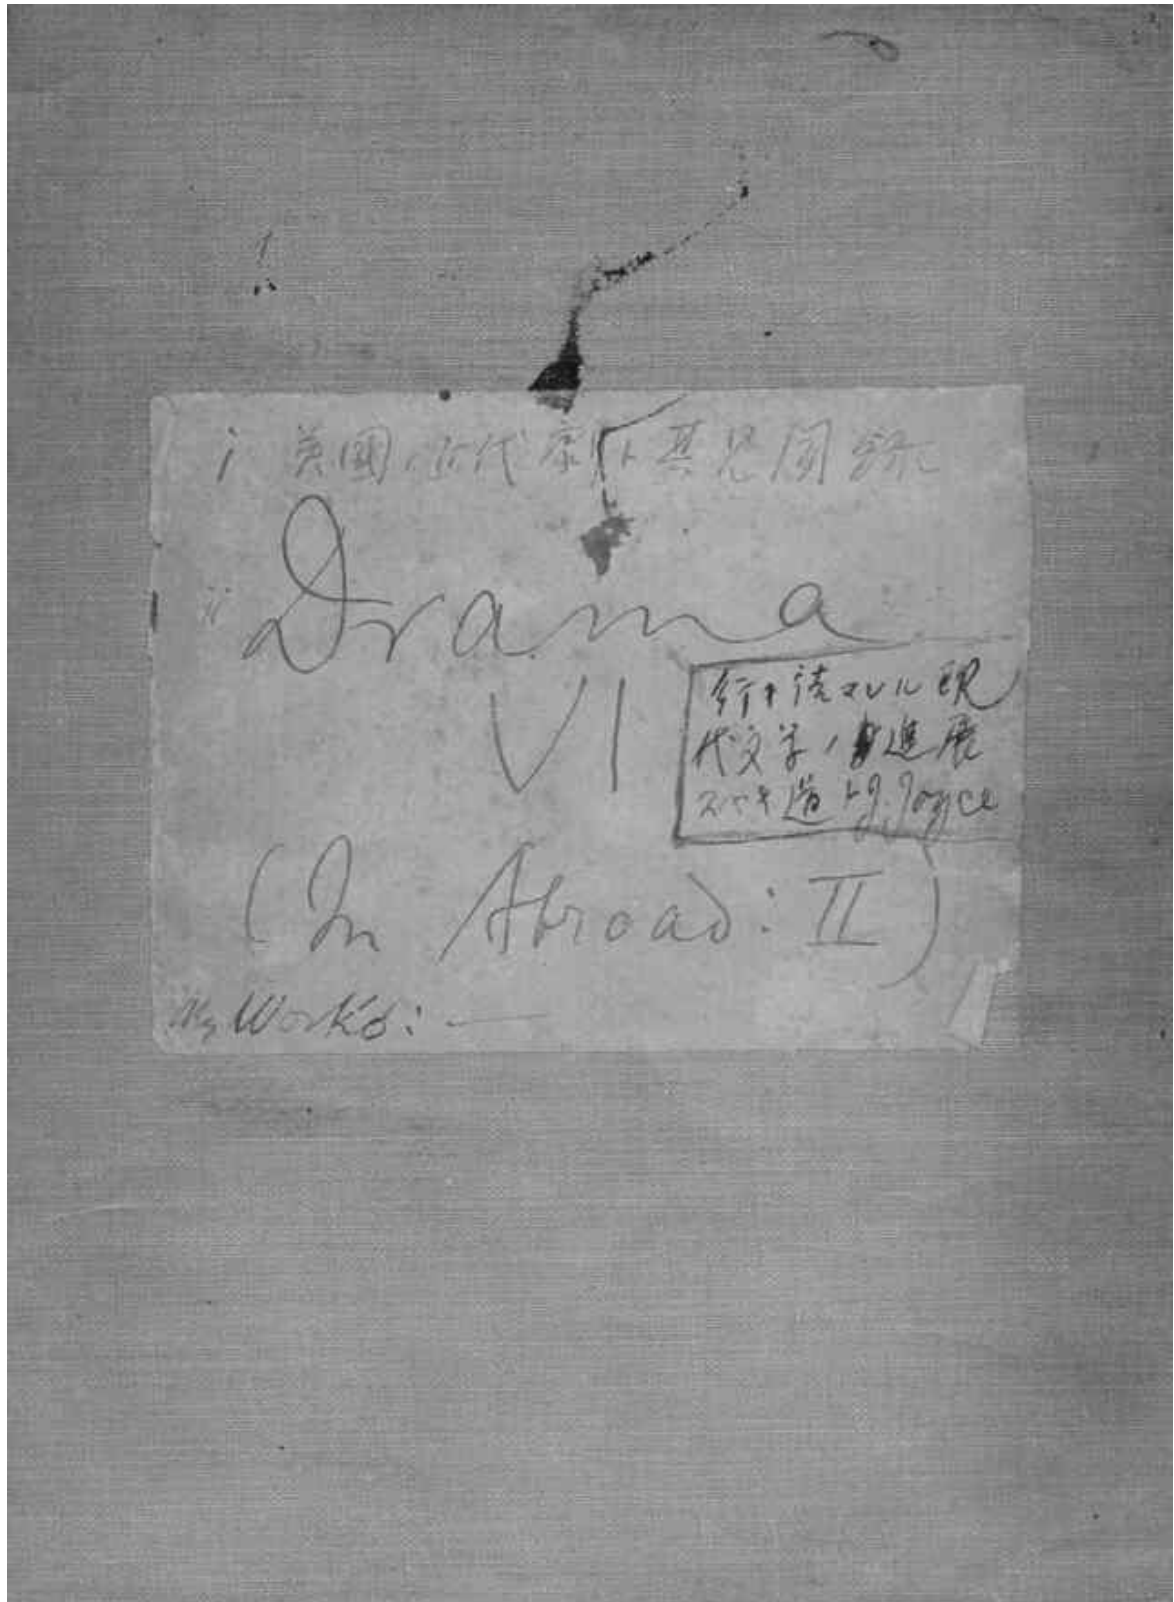 i 英國ノ近代劇ト其思潮
Drama
VI
行キ詰マレル現
代文学ノ進展
スベキ道トJ. Joyce
(In Abroad: II)
My Works: —